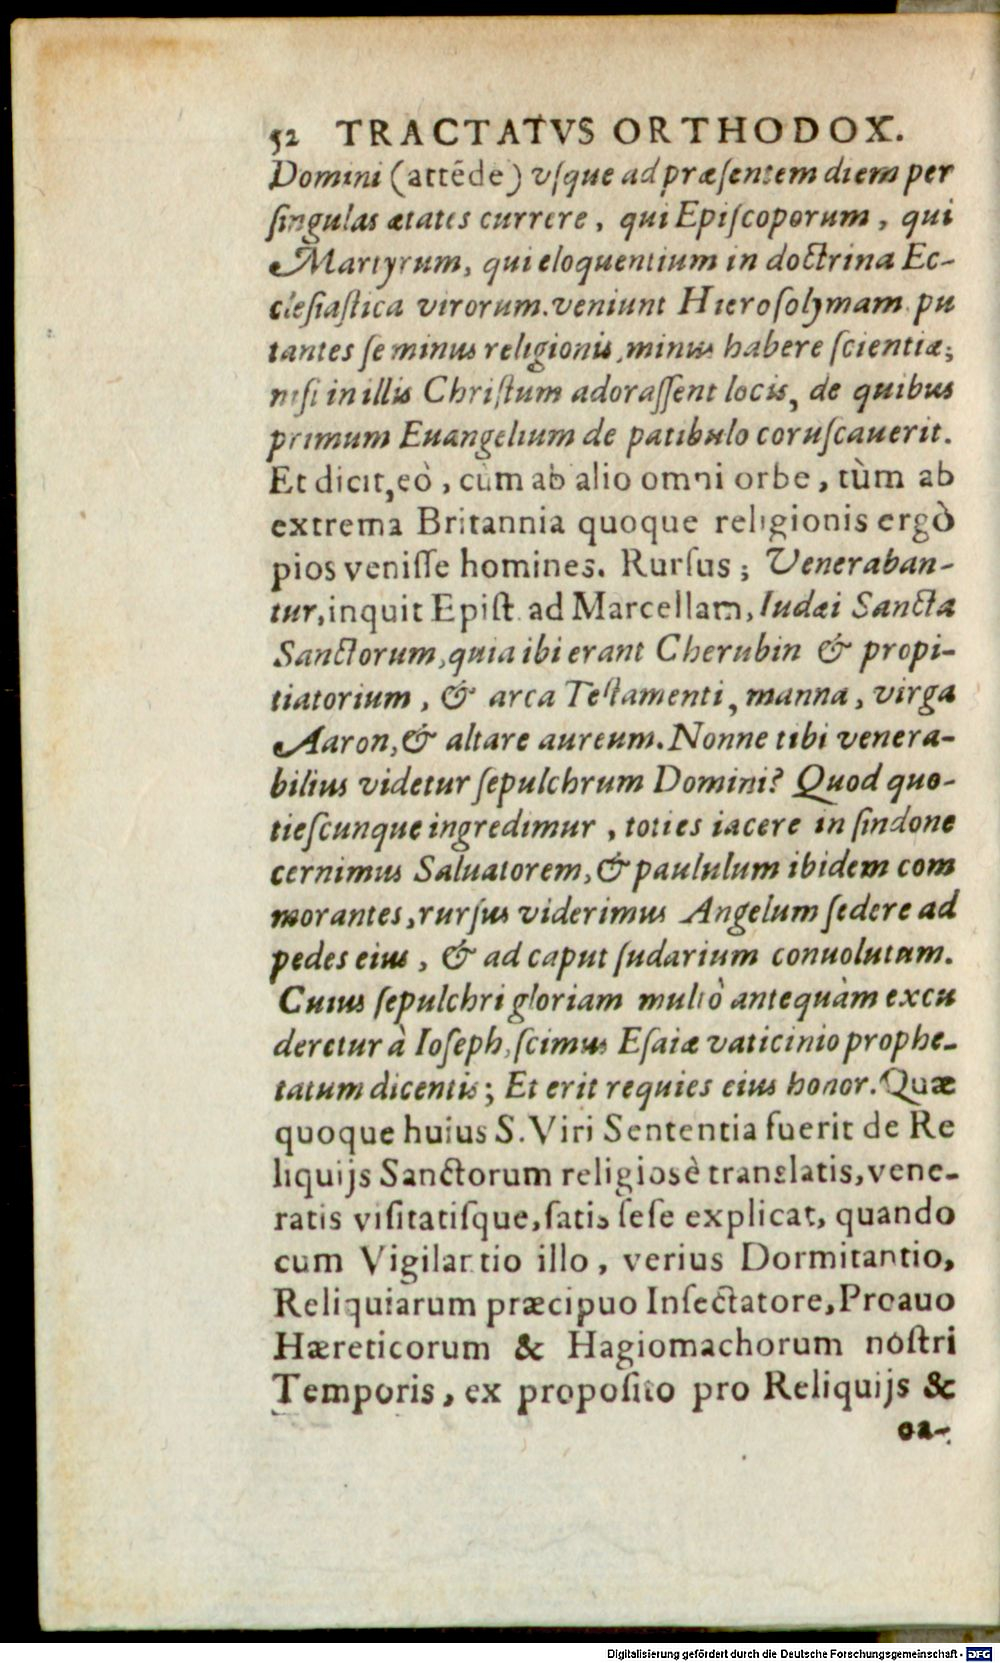 52 TRACTATVS ORTHODOX.
Domini (attēde) vſque ad præſentem diem per
ſingulas ætates currere, qui Epiſcoporum, qui
Martyrum, qui eloquentium in doctrina Ec-
cleſiaſtica virorum.veniunt Hieroſolymam pu
tantes ſe minus religionis, minus habere ſcientiæ;
niſi in illis Chriſtum adoraſſent locis, de quibus
primum Euangelium de patibulo coruſcauerit.
Et dicit, eò, cùm ab alio omni orbe, tùm ab
extrema Britannia quoque religionis ergò
pios veniſſe homines. Rurſus; Veneraban-
tur, inquit Epiſt. ad Marcellam, Iudæi Sancta
Sanctorum, quia ibi erant Cherubin & propi-
tiatorium, & arca Teſtamenti, manna, virga
Aaron, & altare aureum. Nonne tibi venera-
bilius videtur ſepulchrum Domini? Quod quo-
tieſcunque ingredimur, toties iacere in ſindone
cernimus Saluatorem, & paululum ibidem com
morantes, rurſus viderimus Angelum ſedere ad
pedes eius, & ad caput ſudarium conuolutum.
Cuius ſepulchri gloriam multò antequàm excu
deretur à Ioſeph, ſcimus Eſaiæ vaticinio prophe-
tatum dicentis; Et erit requies eius honor. Quæ
quoque huius S. Viri Sententia fuerit de Re
liquijs Sanctorum religiosè translatis, vene-
ratis viſitatiſque, ſatis ſeſe explicat, quando
cum Vigilantio illo, verius Dormitantio,
Reliquiarum præcipuo Inſectatore, Proauo
Hæreticorum & Hagiomachorum noſtri
Temporis, ex propoſito pro Reliquijs &
ea-
Digitalisierung gefördert durch die Deutsche Forschungsgemeinschaft - DFG